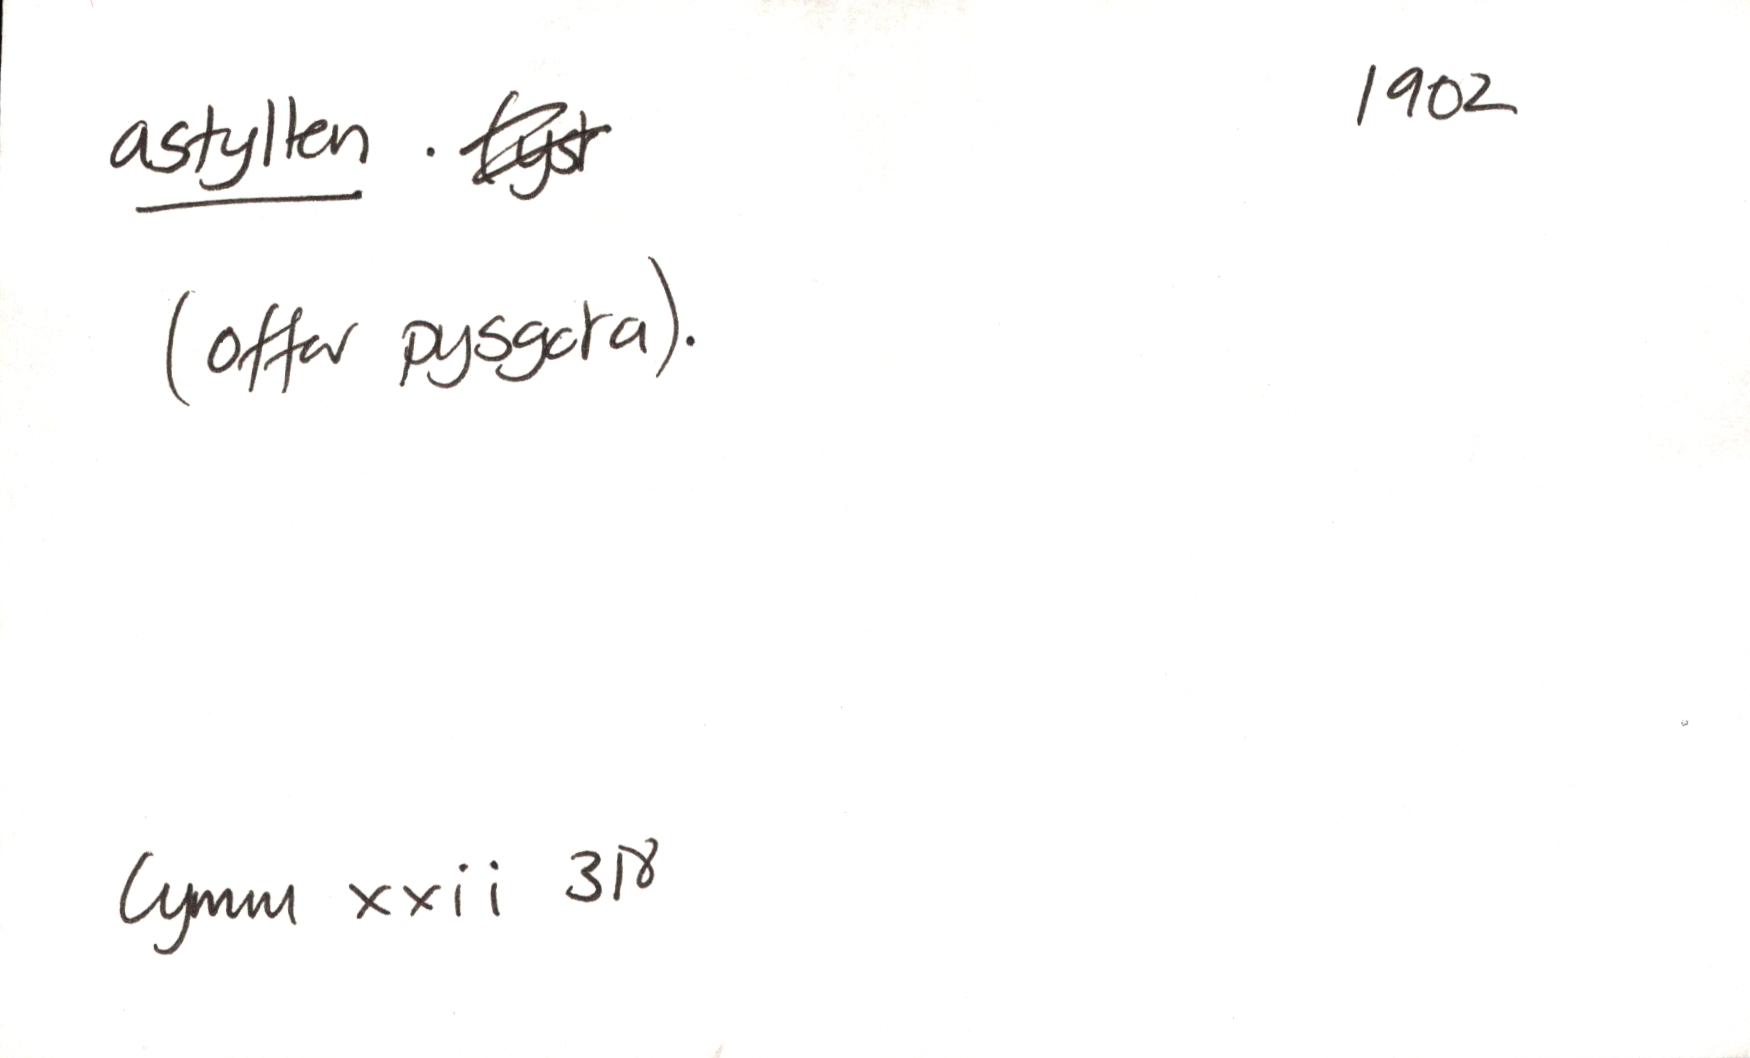 astyllen. 1902
(offer pysgota).
Cymru xxii 318